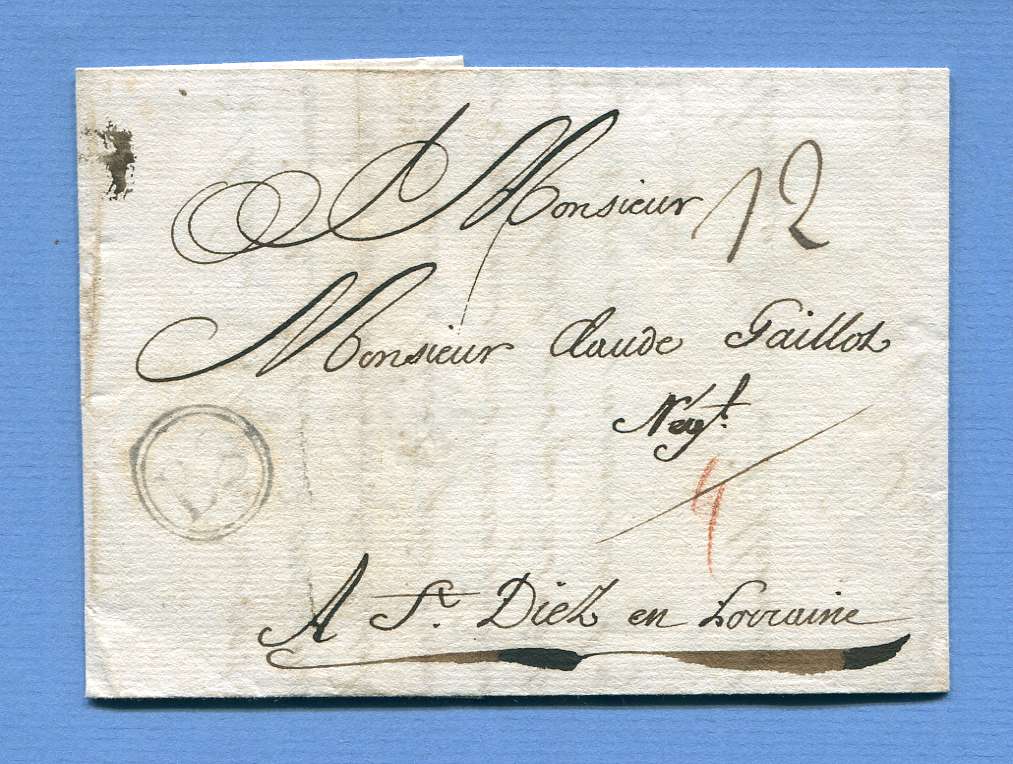 Monsieur 12
Monsieur Claude Gaillot
Negt.
4
A St. Diez en Lorraine